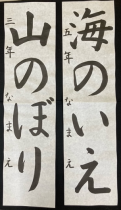 海のいえ
五年 なまえ
山のぼり
三年 なまえ